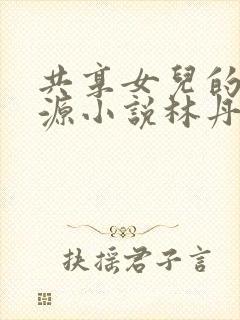 共享女兒的
源小說林丹
扶摇君子言